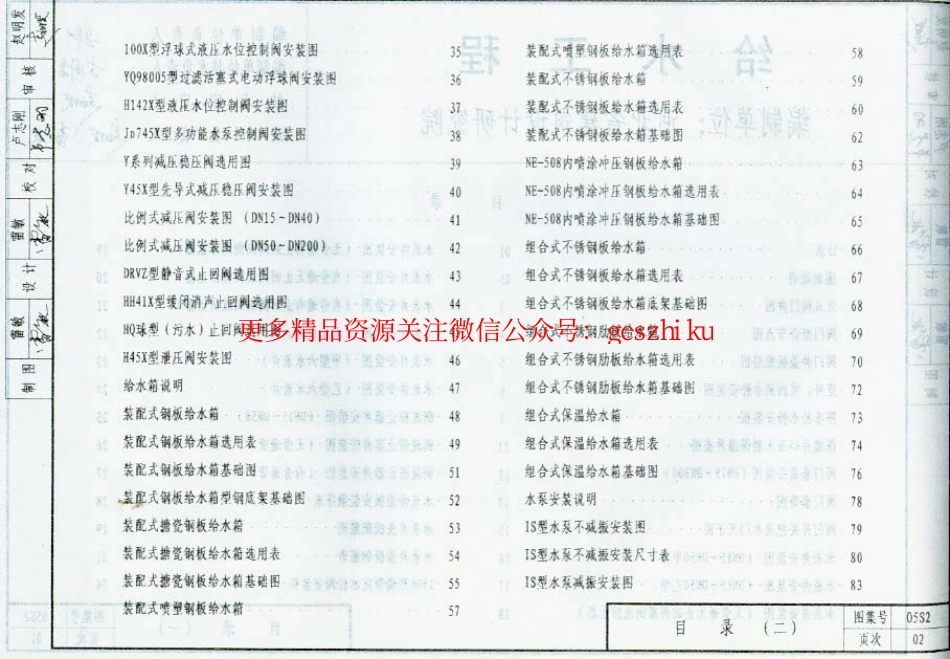 100X型浮球式液压水位控制阀安装图 35
YQ98005型过滤活塞式电动浮球阀安装图 36
H142X型液压水位控制阀安装图 37
JD745X型多功能水泵控制阀安装图 38
Y系列减压稳压阀选用图 39
Y45X型先导式减压稳压阀安装图 40
比例式减压阀安装图 (DN15～DN40) 41
比例式减压阀安装图 (DN50～DN200) 42
DRVZ型静音式止回阀选用图 43
HH41X型缓闭消声止回阀选用图 44
HQ球型(污水)止回阀选用图 45
H45X型泄压阀安装图 46
给水箱说明 47
装配式钢板给水箱 48
装配式钢板给水箱选用表 49
装配式钢板给水箱基础图 51
装配式钢板给水箱型钢底架基础图 52
装配式搪瓷钢板给水箱 53
装配式搪瓷钢板给水箱选用表 54
装配式搪瓷钢板给水箱基础图 55
装配式喷塑钢板给水箱 57
装配式喷塑钢板给水箱选用表 58
装配式不锈钢板给水箱 59
装配式不锈钢板给水箱选用表 60
装配式不锈钢板给水箱基础图 62
NE-508内喷涂冲压钢板给水箱 63
NE-508内喷涂冲压钢板给水箱选用表 64
NE-508内喷涂冲压钢板给水箱基础图 65
组合式不锈钢板给水箱 66
组合式不锈钢板给水箱选用表 67
组合式不锈钢板给水箱底架基础图 68
组合式不锈钢肋板给水箱 69
组合式不锈钢肋板给水箱选用表 70
组合式不锈钢肋板给水箱基础图 72
组合式保温给水箱 73
组合式保温给水箱选用表 74
组合式保温给水箱基础图 76
水泵安装说明 78
IS型水泵不减振安装图 79
IS型水泵不减振安装尺寸表 80
IS型水泵减振安装图 83
更多精品资源关注微信公众号：gcszhiku
目 录 (二)
图集号 05S2
页次 02
赵明发
审核
卢志刚
校对
雷敏
设计
雷敏
制图